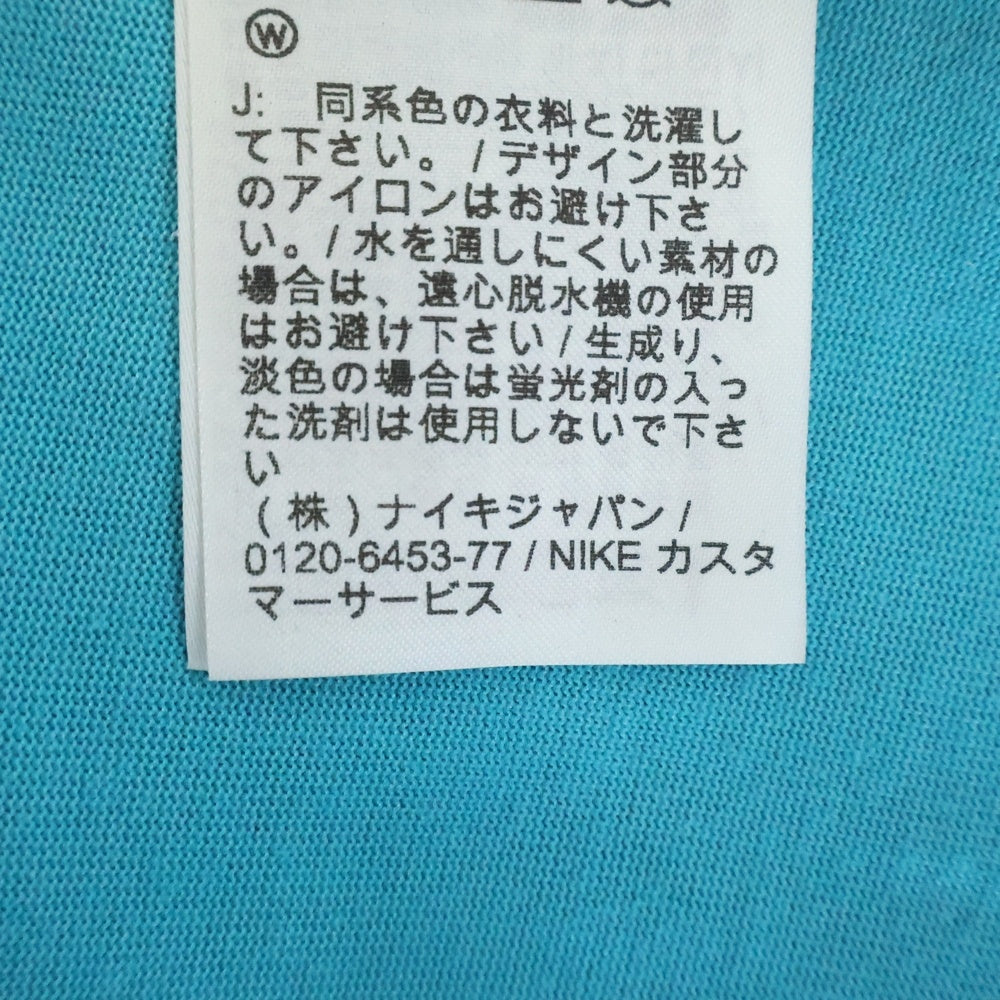 W
J: 同系色の衣料と洗濯し
て下さい。/デザイン部分
のアイロンはお避け下さ
い。/水を通しにくい素材の
場合は、遠心脱水機の使用
はお避け下さい/生成り、
淡色の場合は蛍光剤の入っ
た洗剤は使用しないで下さ
い
(株)ナイキジャパン/
0120-6453-77 / NIKE カスタ
マーサービス